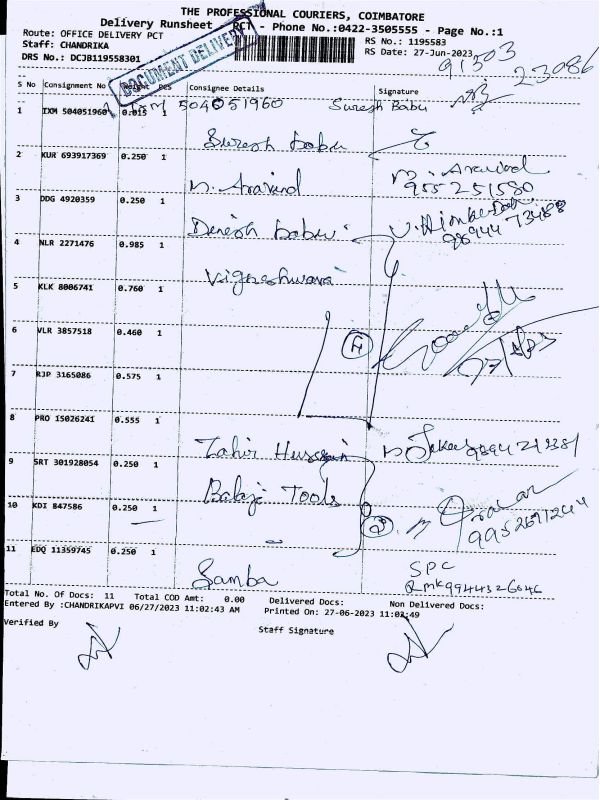 THE PROFESSIONAL COURIERS, COIMBATORE
Delivery Runsheet PCT - Phone No.:0422-3505555 - Page No.:1
Route: OFFICE DELIVERY PCT
RS No.: 1195583
Staff: CHANDRIKA
RS Date: 27-Jun-2023
DRS No.: DCJB119558301
DOCUMENT DELIVERY
91303
23086
S No Consignment No Weight PCS Consignee Details Signature
504051960 Suresh Babu
1 IXM 504051960 0.015 1
Suresh babu
2 KUR 693917369 0.250 1
N. Aravind
955251580
3 DDG 4920359 0.250 1
Dinesh babu
98944 73488
4 NLR 2271476 0.985 1
Vigneshwara
5 KLK 8006741 0.760 1
6 VLR 3857518 0.460 1
7 RJP 3165086 0.575 1
8 PRO 15026241 0.555 1
Tahir Hussain
9 SRT 301928054 0.250 1
Balaji Tools
10 KDI 847586 0.250 1
11 EDQ 11359745 0.250 1
Samba SPC
Total No. Of Docs: 11 Total COD Amt: 0.00 Delivered Docs: Non Delivered Docs:
Entered By :CHANDRIKAPVI 06/27/2023 11:02:43 AM Printed On: 27-06-2023 11:02:49
Verified By
Staff Signature